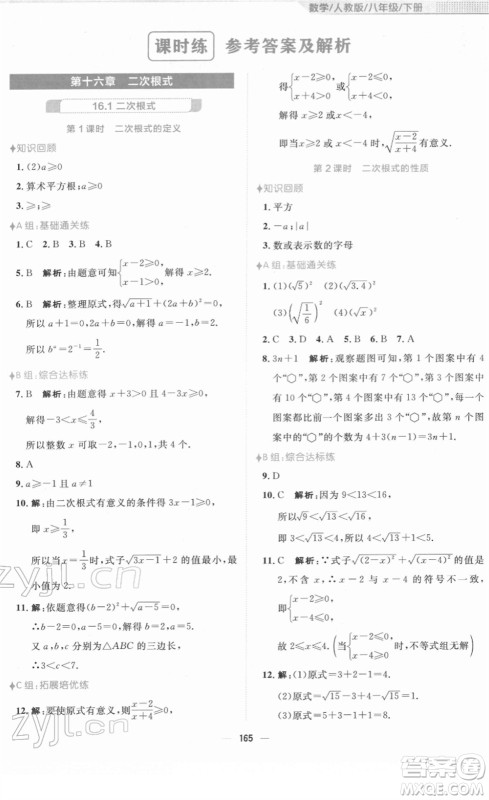 数学/人教版/八年级/下册
课时练 参考答案及解析
第十六章 二次根式
16.1 二次根式
第1课时 二次根式的定义
知识回顾
1. (2)a⩾0
2. 算术平方根;a⩾0
3. ⩾;⩾
A组:基础通关练
1. C 2. B 3. B 4. B
5. B 解析:由题意可知{x-2⩾0, x-1>0} 解得 x⩾2.
6. B 解析:整理原式,得√(a+1)+2(a+b)²=0,
所以 a+1=0,2a+b=0,解得 a=-1,b=2,
所以 bᵃ=2⁻¹=1/2.
B组:综合达标练
7. B 解析:由题意,得
解得 -3<x⩽4/3.
所以整数 x 可取-2,-1,0,1,共4个.
8. A
9. a⩾-1 且 a≠1
10. 解:由二次根式有意义的条件得3x-1⩾0,
即 x⩾1/3,
所以当 x=1/3 时,式子√(3x-1)+2 的值最小,最小值为2.
11. 解:依题意得(b-2)²+√(a-5)=0,
∴a-5=0,b-2=0,解得 a=5,b=2.
又 a,b,c分别为△ABC的三边长,
∴3<c<7.
C组:拓展培优练
12. 解:由题意得 (x-2)/(x+4)⩾0,
得{x-2⩾0, x+4>0} 或{x-2⩽0, x+4<0.}
解得 x⩾2 或 x<-4,
即当 x⩾2 或 x<-4 时,√((x-2)/(x+4))有意义.
第2课时 二次根式的性质
知识回顾
1. 平方
2. -a;|a|
3. 数或表示数的字母
A组:基础通关练
1. (1)(√5)² (2)(√3.4)²
(3)(√(1/6))²
2. C 3. D 4. A 5. B 6. B 7. A
8. 3n+1 解析:观察题图可知,第1个图案中有4个“⬡”,第2个图案中有7个“⬡”,第3个图案中有10个“⬡”,第4个图案中有13个“⬡”,…,每个图案都比前一个图案多3个“⬡”,所以第n个图案中“⬡”的个数为4+3(n-1)=3n+1.
B组:综合达标练
9. D
10. C 解析:因为9<13<16,
所以3<√13<4,所以4<√13+1<5.
11. C 解析:∵式子√((2-x)²)+√((x-4)²)的值为2,不含x,∴x-2与x-4的符号不一致,
即
故2⩽x⩽4(当 时,不等式组无解).
12. 解:(1)原式=3+2-1=4.
(2)原式=3+1-4=0.
(3)原式=5+4-2=7.
165
zyjl.cn
zyjl.cn
答案圈
MXQE.COM